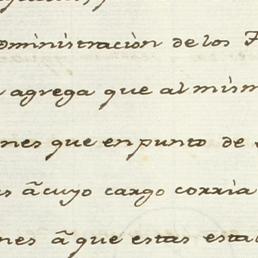 ministración de los
agrega que al mism
nes que en punto de
s á cuyo cargo corria
nes á que estas esta